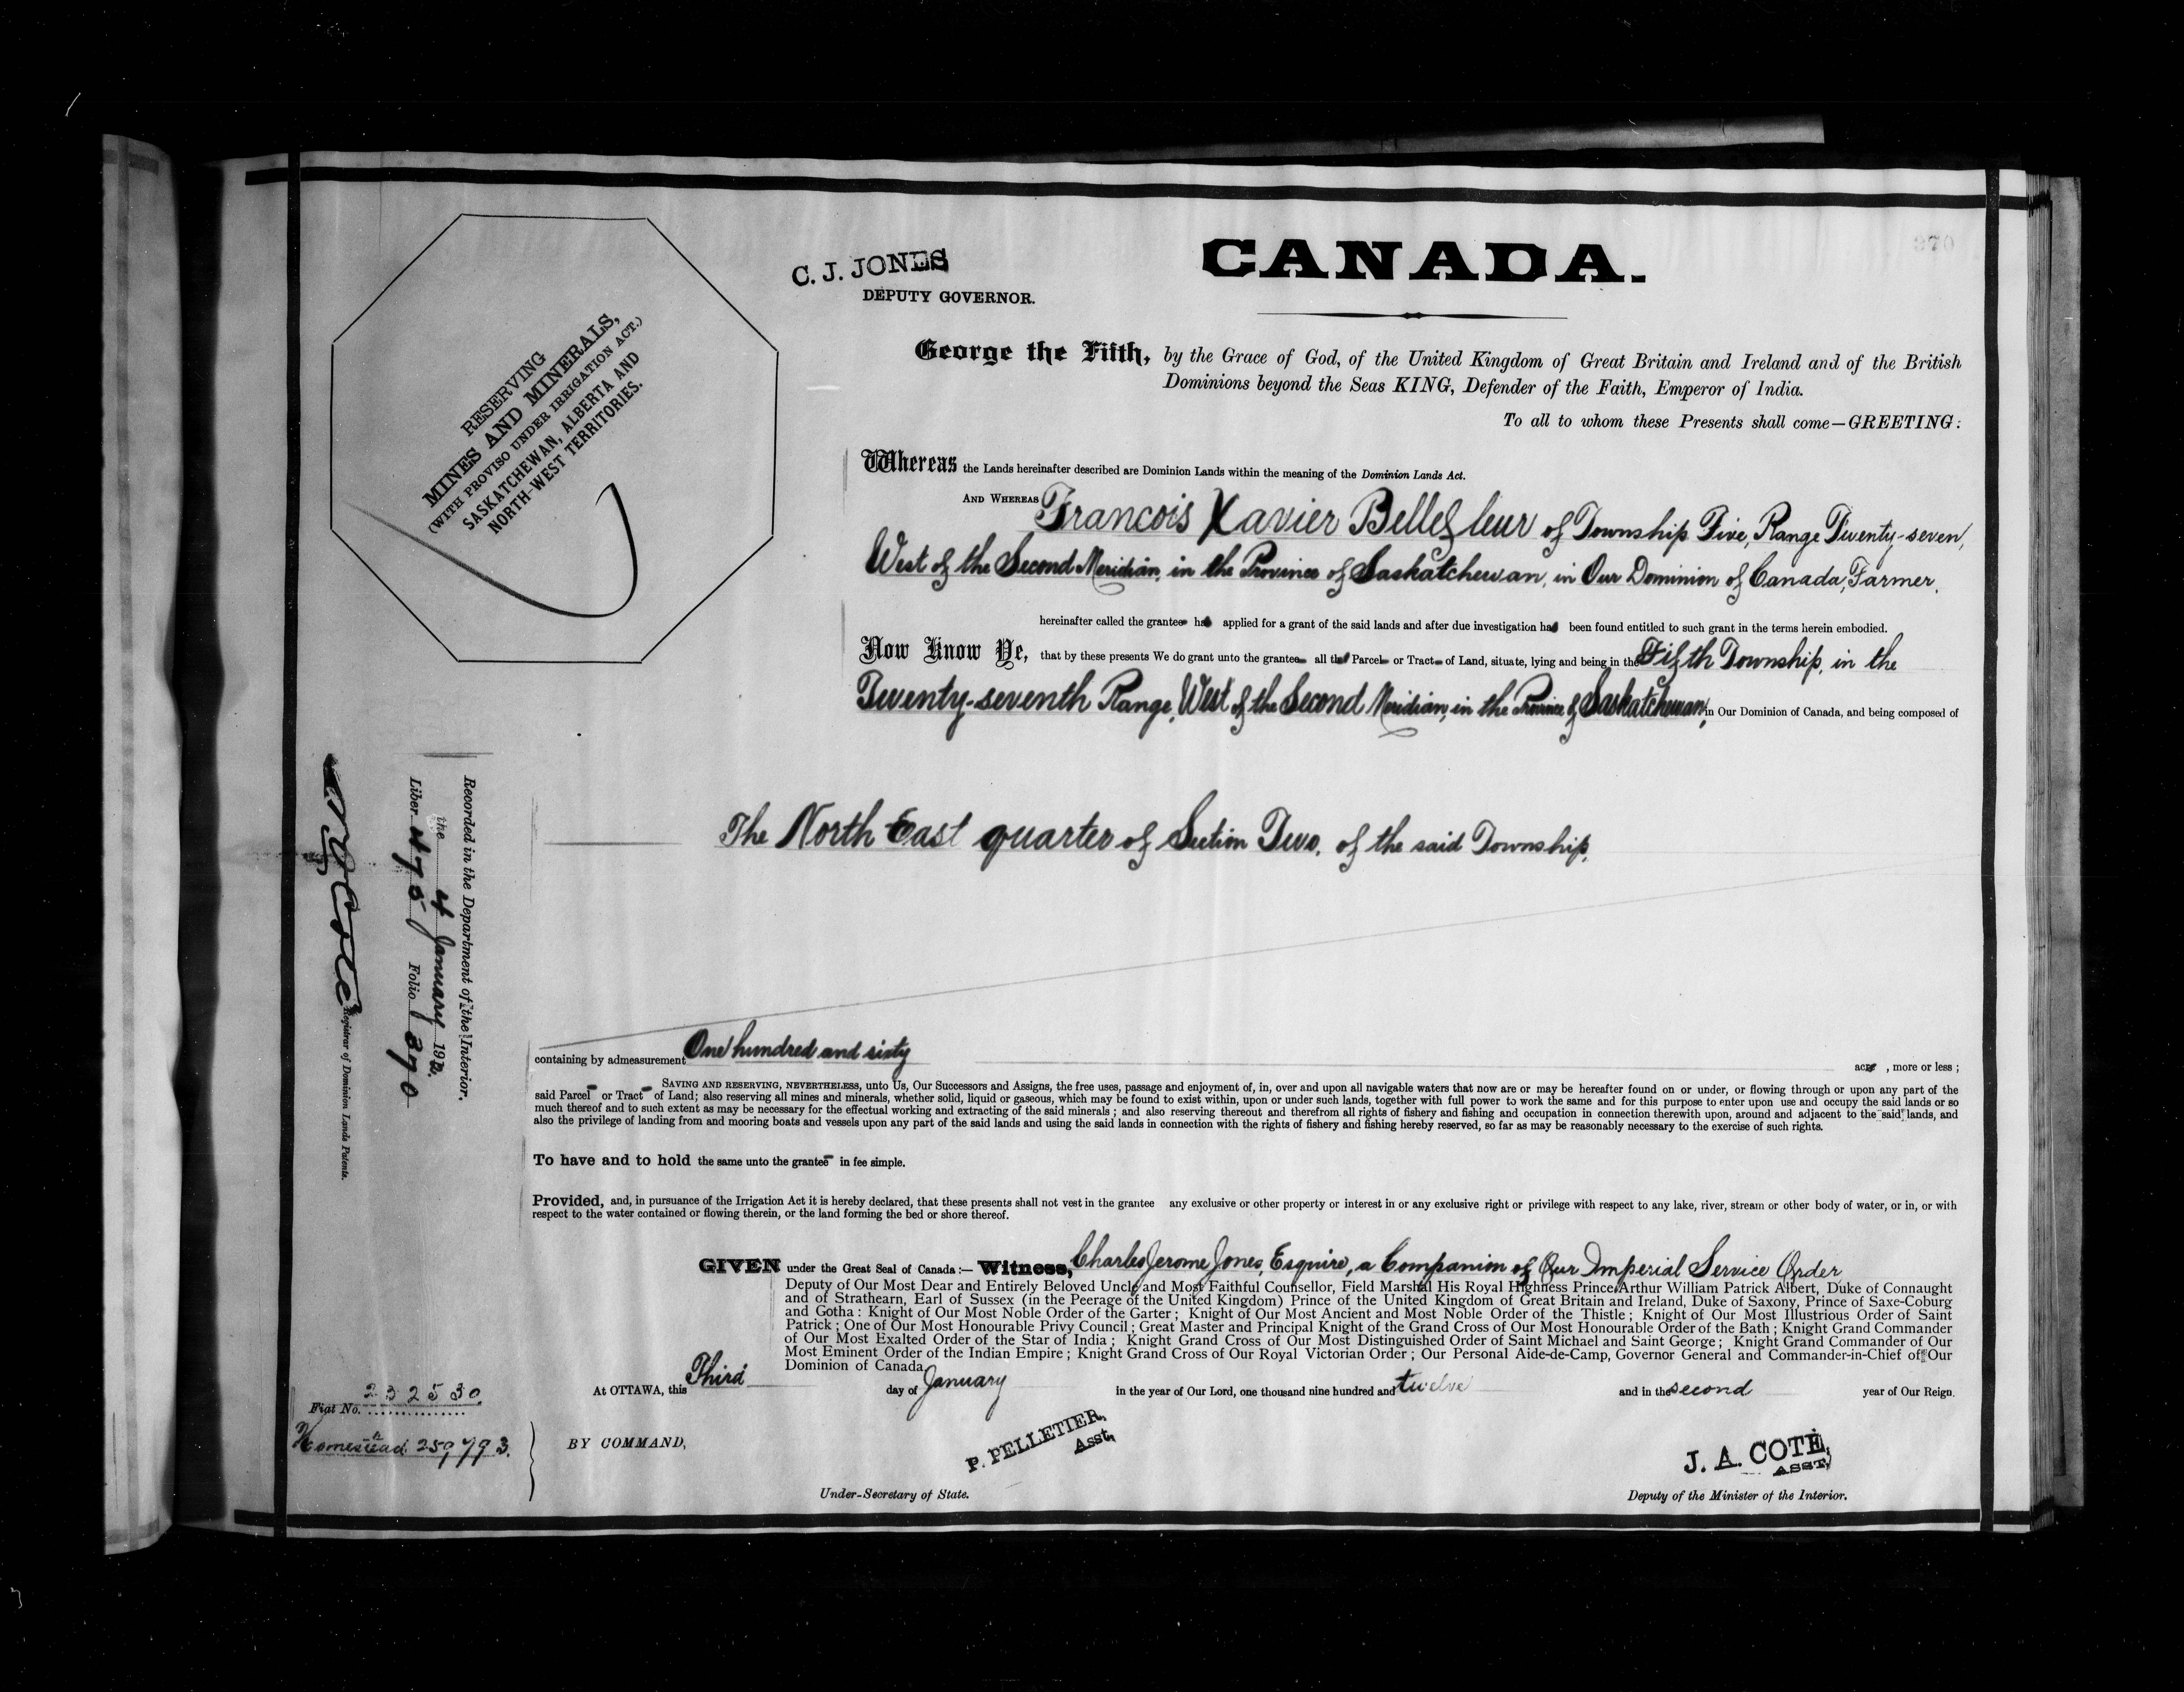 370
CANADA.
C. J. JONES
DEPUTY GOVERNOR.
RESERVING
MINES AND MINERALS,
(WITH PROVISO UNDER IRRIGATION ACT.)
SASKATCHEWAN, ALBERTA AND
NORTH-WEST TERRITORIES.
George the Fifth, by the Grace of God, of the United Kingdom of Great Britain and Ireland and of the British
Dominions beyond the Seas KING, Defender of the Faith, Emperor of India.
To all to whom these Presents shall come—GREETING:
Whereas the Lands hereinafter described are Dominion Lands within the meaning of the Dominion Lands Act.
AND WHEREAS Francois Xavier Bellefleur of Township Five, Range Twenty-seven,
West of the Second Meridian, in the Province of Saskatchewan, in Our Dominion of Canada, Farmer,
hereinafter called the grantee has applied for a grant of the said lands and after due investigation has been found entitled to such grant in the terms herein embodied.
Now Know Ye, that by these presents We do grant unto the grantee all that Parcel or Tract of Land, situate, lying and being in the Fifth Township, in the
Twenty-seventh Range, West of the Second Meridian, in the Province of Saskatchewan, in Our Dominion of Canada, and being composed of
The North East quarter of Section Two, of the said Township,
containing by admeasurement One hundred and sixty acres, more or less;
SAVING AND RESERVING, NEVERTHELESS, unto Us, Our Successors and Assigns, the free uses, passage and enjoyment of, in, over and upon all navigable waters that now are or may be hereafter found on or under, or flowing through or upon any part of the
said Parcel or Tract of Land; also reserving all mines and minerals, whether solid, liquid or gaseous, which may be found to exist within, upon or under such lands, together with full power to work the same and for this purpose to enter upon use and occupy the said lands or so
much thereof and to such extent as may be necessary for the effectual working and extracting of the said minerals; and also reserving thereout and therefrom all rights of fishery and fishing and occupation in connection therewith upon, around and adjacent to the said lands, and
also the privilege of landing from and mooring boats and vessels upon any part of the said lands and using the said lands in connection with the rights of fishery and fishing hereby reserved, so far as may be reasonably necessary to the exercise of such rights.
To have and to hold the same unto the grantee in fee simple.
Provided, and, in pursuance of the Irrigation Act it is hereby declared, that these presents shall not vest in the grantee any exclusive or other property or interest in or any exclusive right or privilege with respect to any lake, river, stream or other body of water, or in, or with
respect to the water contained or flowing therein, or the land forming the bed or shore thereof.
GIVEN under the Great Seal of Canada:— Witness, Charles Jerome Jones Esquire, a Companion of Our Imperial Service Order
Deputy of Our Most Dear and Entirely Beloved Uncle and Most Faithful Counsellor, Field Marshal His Royal Highness Prince Arthur William Patrick Albert, Duke of Connaught
and of Strathearn, Earl of Sussex (in the Peerage of the United Kingdom) Prince of the United Kingdom of Great Britain and Ireland, Duke of Saxony, Prince of Saxe-Coburg
and Gotha: Knight of Our Most Noble Order of the Garter; Knight of Our Most Ancient and Most Noble Order of the Thistle; Knight of Our Most Illustrious Order of Saint
Patrick; One of Our Most Honourable Privy Council; Great Master and Principal Knight of the Grand Cross of Our Most Honourable Order of the Bath; Knight Grand Commander
of Our Most Exalted Order of the Star of India; Knight Grand Cross of Our Most Distinguished Order of Saint Michael and Saint George; Knight Grand Commander of Our
Most Eminent Order of the Indian Empire; Knight Grand Cross of Our Royal Victorian Order; Our Personal Aide-de-Camp, Governor General and Commander-in-Chief of Our
Dominion of Canada.
At OTTAWA, this Third day of January in the year of Our Lord, one thousand nine hundred and twelve and in the second year of Our Reign.
BY COMMAND,
P. PELLETIER,
Asst.
Under-Secretary of State.
J. A. COTÉ,
ASST.
Deputy of the Minister of the Interior.
Recorded in the Department of the Interior.
the 4 January 1912.
Liber 475 Folio 370
Registrar of Dominion Lands Patents.
Fiat No. 232530
Homestead. 259793.